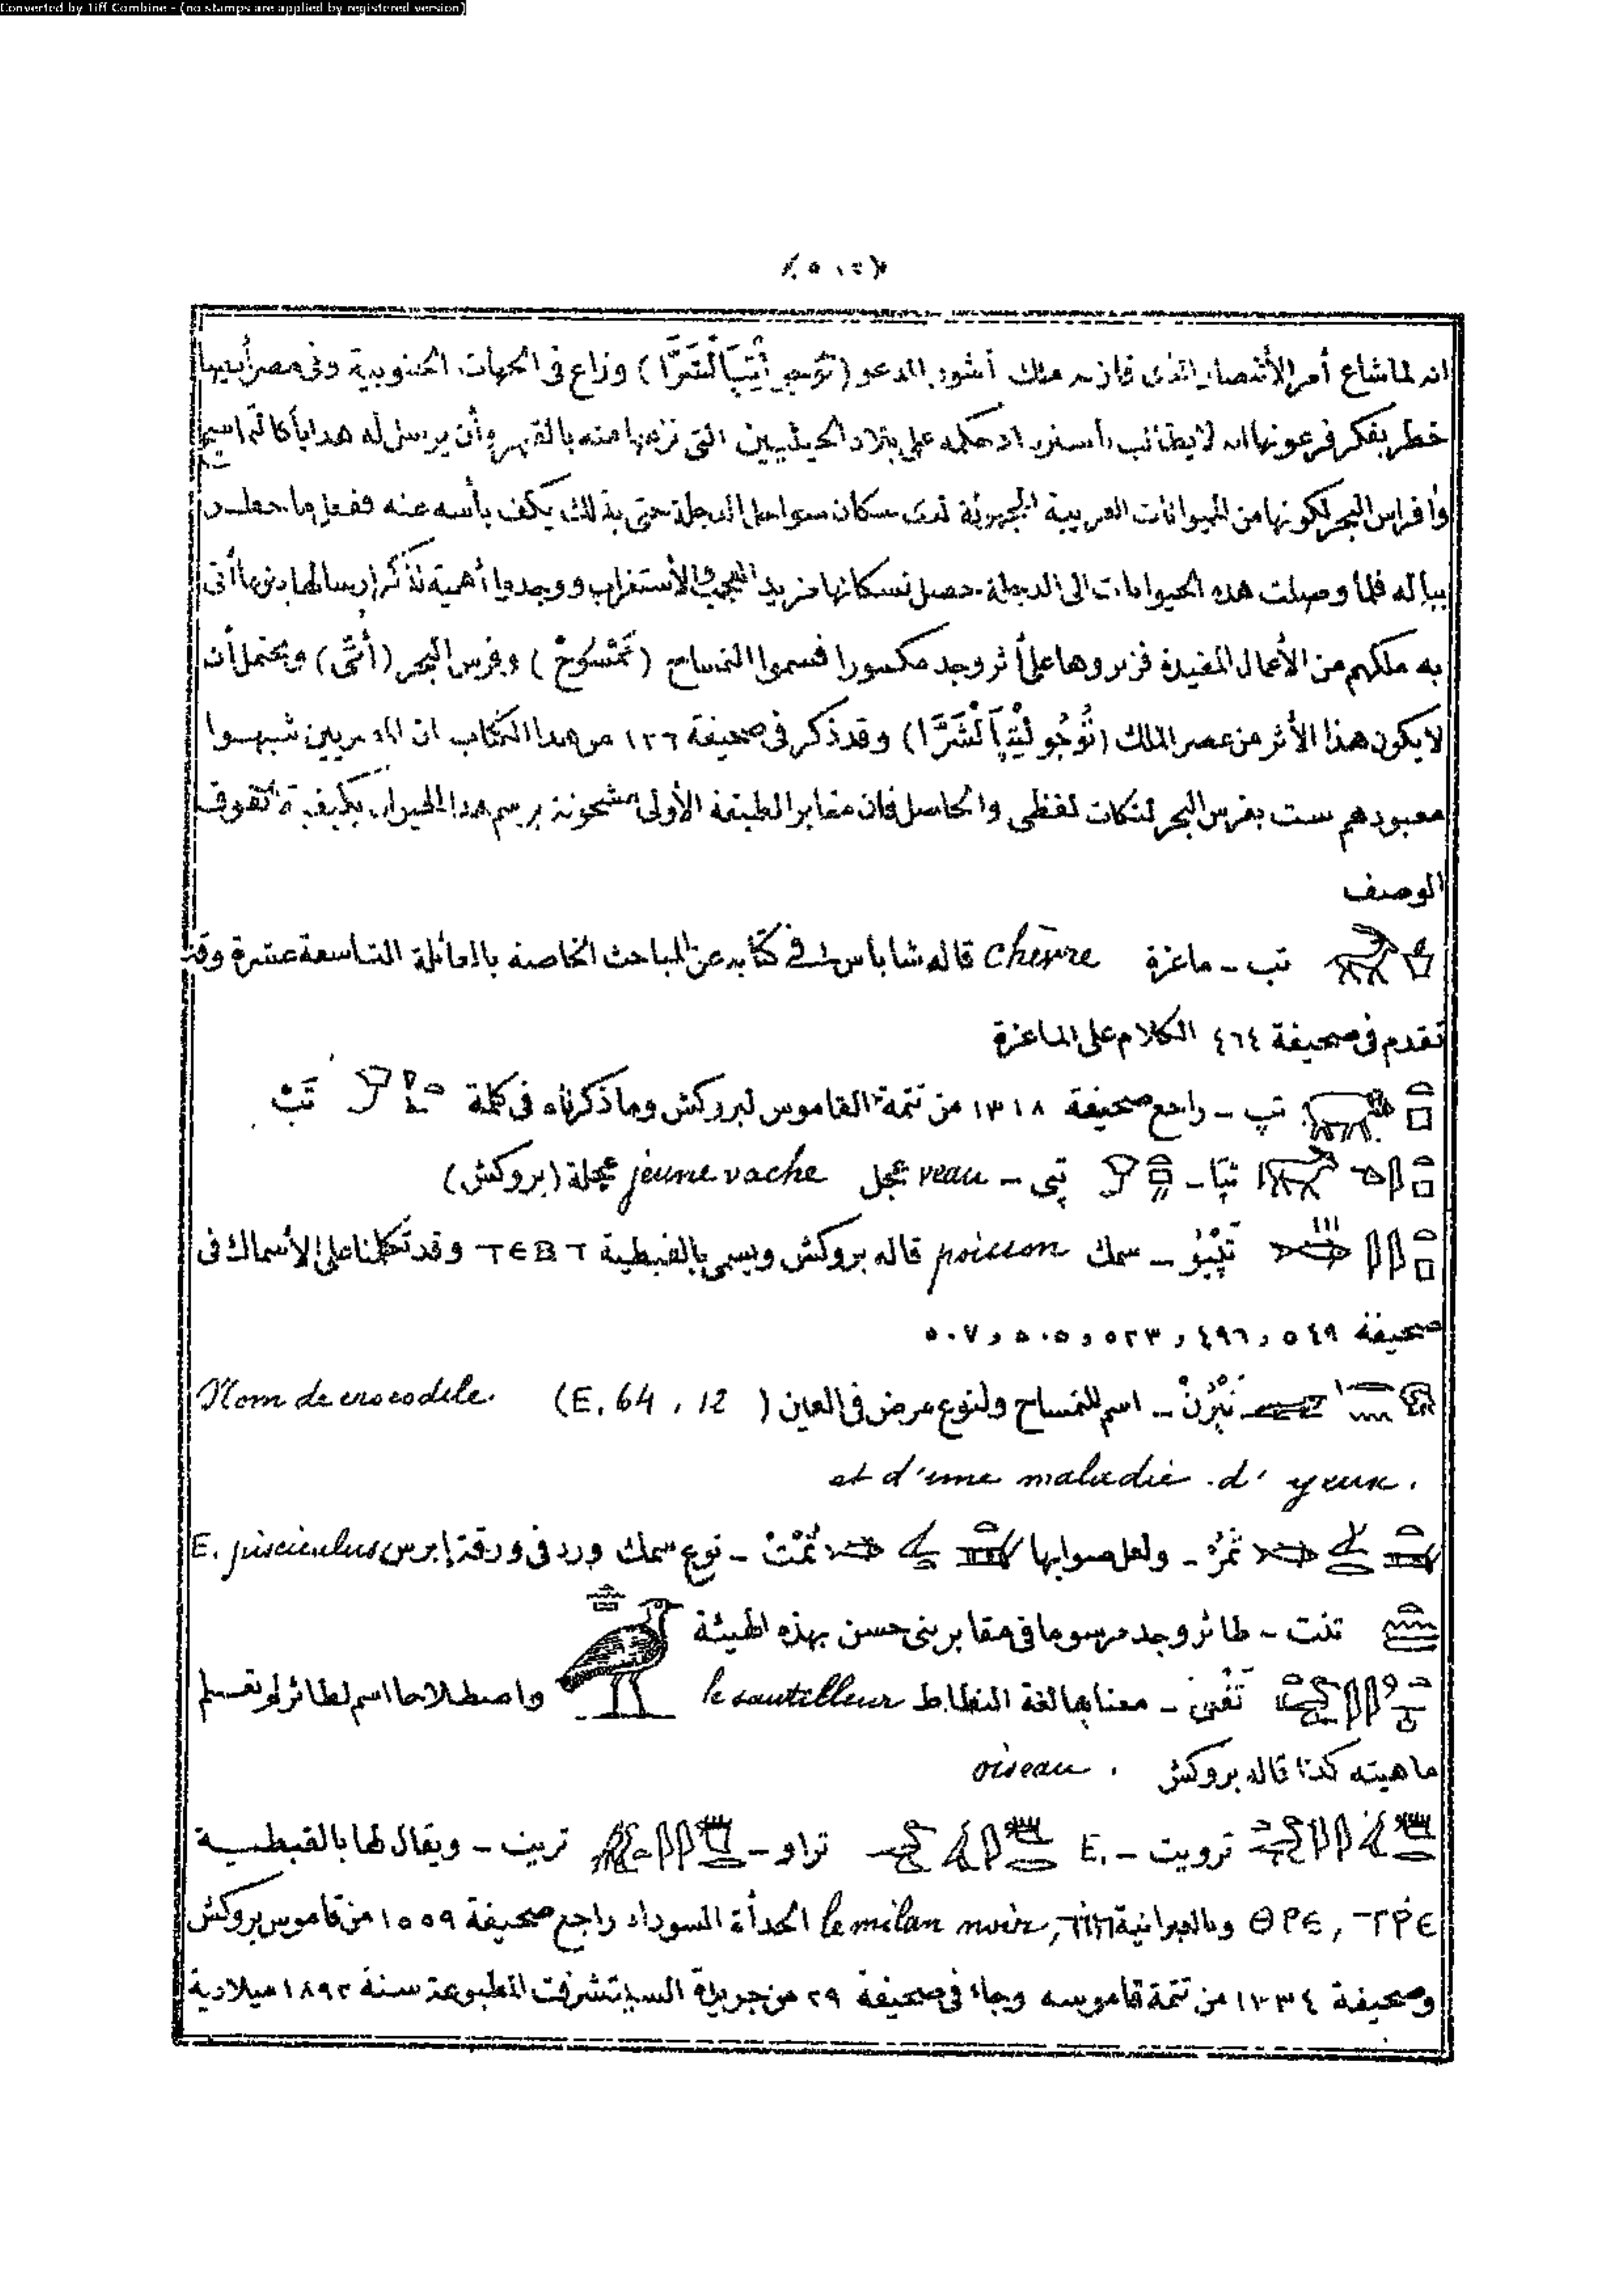 Converted by Tiff Combine - (no stamps are applied by registered version)
انه لما شاع أمر الأنتصار الذى فاز به ملك أشور المدعو ( ) وزاع فى الجهات الجنوبية وفى مصر أيضا
خطر بفكر فرعونها انه لا يطالب باسترداد حكمه على بلاد الحيثيين التى نزعها منه بالقهر وأن يرسل له هدايا كالتماسيح
وأفراس البحر لكونها من الحيوانات الغريبة المجهولة لدى سكان سواحل الدجلة حتى بذلك يكف بأسه عنه ففعل ما خطر
بباله فلما وصلت هذه الحيوانات الى الدجلة حصل لسكانها مزيد العجب والأستغراب ووجدوا أهمية لذكر ارسالها دون ما أتى
به ملكهم من الأعمال المفيدة فزبروها على أثر وجد مكسورا فسموا التمساح (تَمْسُوخْ) وفرس البحر (أُمْتَى) ويحتمل أن
لا يكون هذا الأثر من عصر الملك ( ) وقد ذكر فى صحيفة ١٢٦ من هذا الكتاب ان المصريين شبهوا
معبودهم ست بفرس البحر لنكات لفظى والحاصل فان مقابر الطبقة الأولى مشحونة برسم هذا الحيوان بكيفية تفوق
الوصف
تب - ماعزة chèvre قاله شاباس فى كتابه عن المباحث الخاصة بالعائلة التاسعة عشرة وقد
تقدم فى صحيفة ٤٦٤ الكلام على الماعزة
تپ - راجع صحيفة ١٣١٨ من تتمة القاموس لبروكش وما ذكرناه فى كلمة تَبْ
تپَا - تپى - veau عجل jeune vache عجلة (بروكش)
تَپْيُو - سمك poisson قاله بروكش ويسمى بالقبطية ΤΕΒΤ وقد تكلمنا على الأسماك فى
صحيفة ٥٤٩ و ٤٩٦ و ٥٢٣ و ٥٠٥ و ٥٠٧
- اسم للتمساح ولنوع مرض فى العين (E. 64, 12) Nom de crocodile
et d'une maladie d'yeux.
تمْرُ - ولعل صوابها تُمْتْ - نوع سمك ورد فى ورقة إبرس E. pisciculus
تنت - طائر وجد مرسوما فى مقابر بنى حسن بهذه الهيئة
- معناها لغة النطاط le sautilleur واصطلاحا اسم لطائر لم تعلم
ماهيته كذا قاله بروكش oiseau.
ترويت - E. تراو - تريت - ويقال لها بالقبطية
ΘΡΕ, ΤΡΕ وبالعبرانية le milan noir, الحدأة السوداء راجع صحيفة ١٥٥٩ من قاموس بروكش
وصحيفة ١٣٣٤ من تتمة قاموسه وجاء فى صحيفة ٢٩ من جريدة السيتشرفت المطبوعة سنة ١٨٩٢ ميلادية